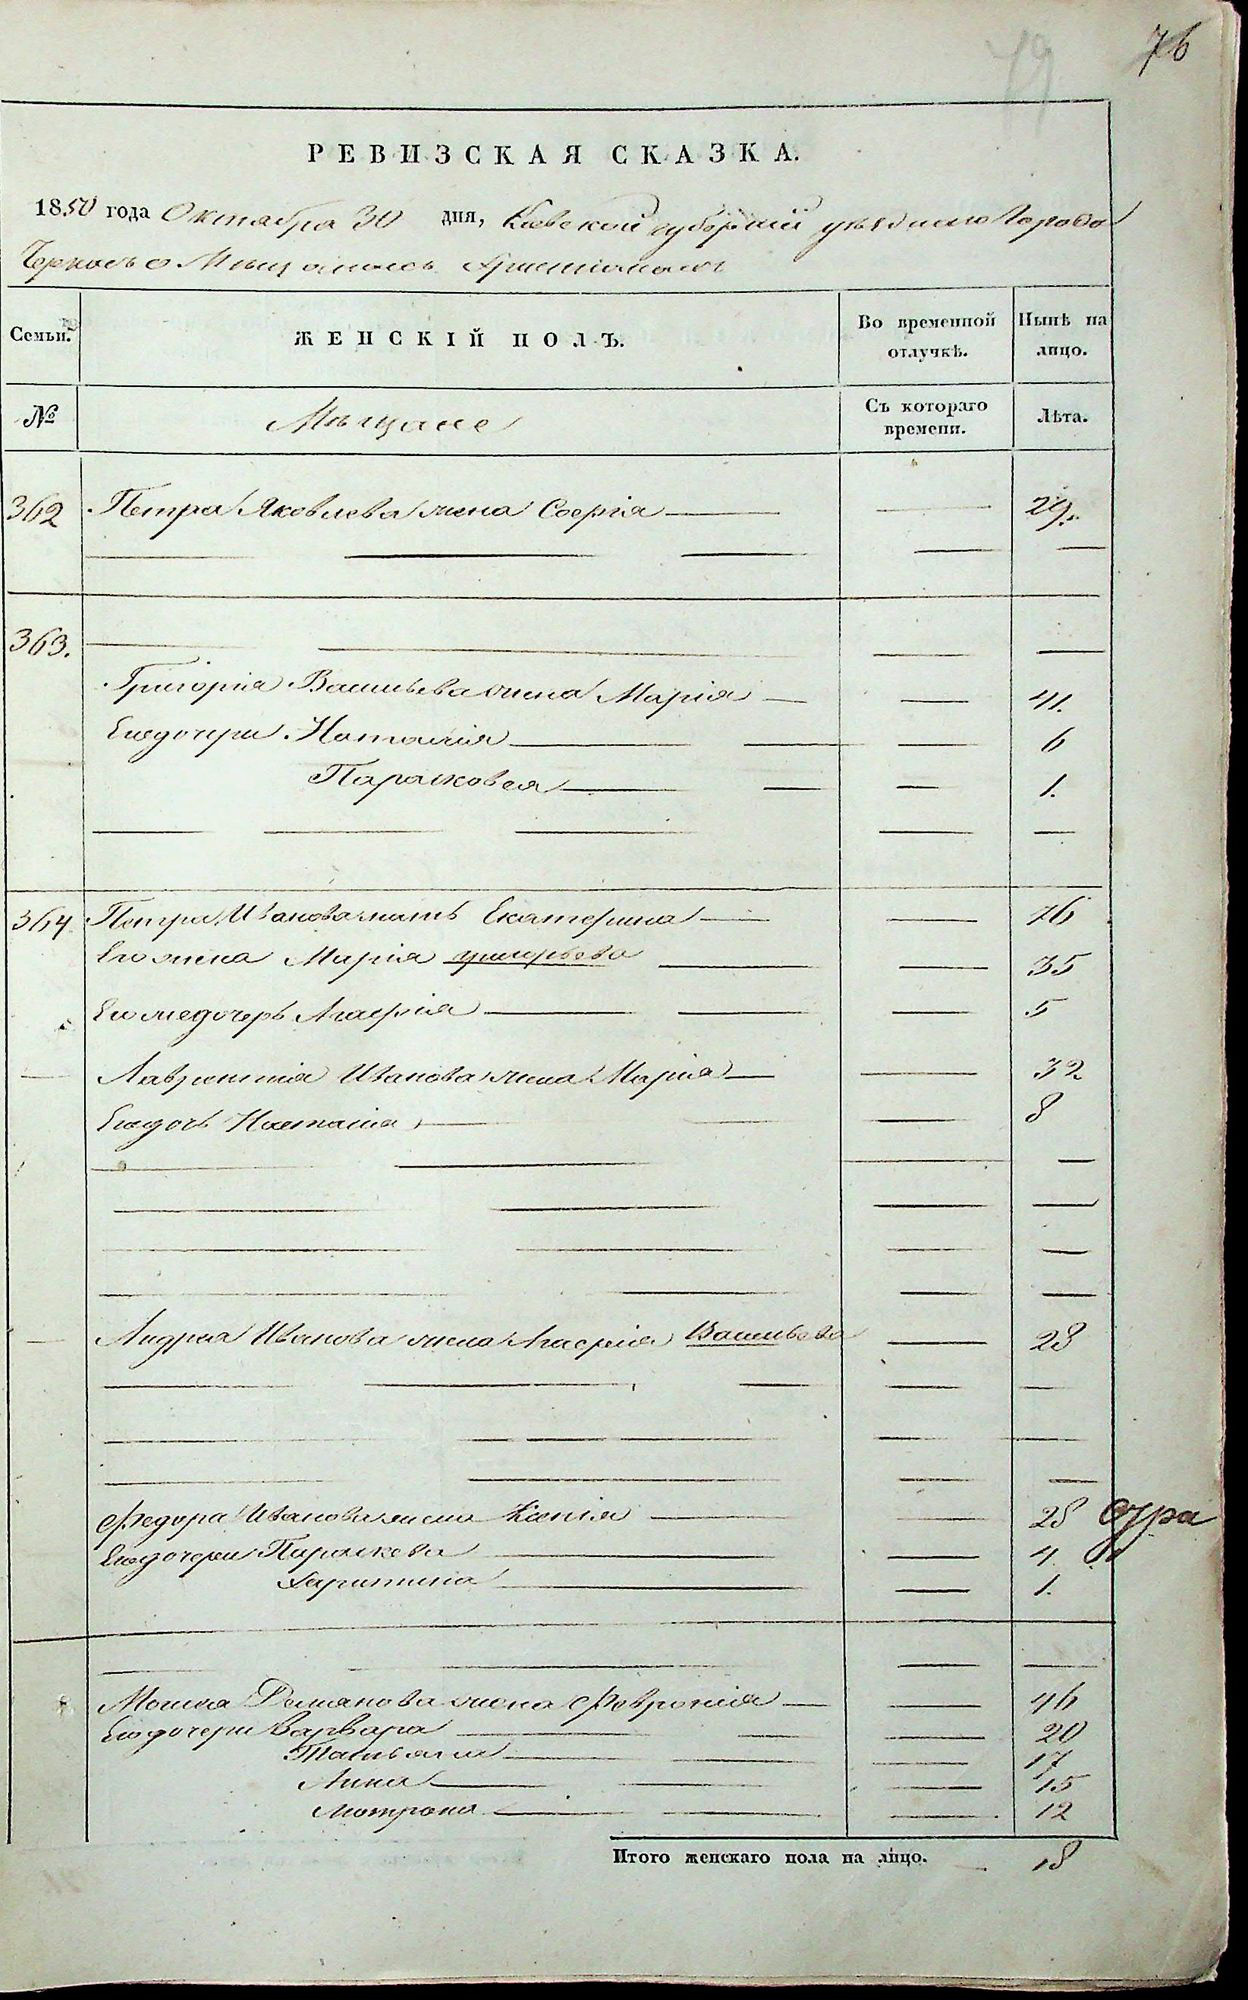 79
76
РЕВИЗСКАЯ СКАЗКА.
1850 года Октября 30 дня, Киевской губерніи уѣзднаго Города
Черкасъ о Мѣщанахъ Христіанахъ
Семьи.
ЖЕНСКІЙ ПОЛЪ.
Во временной отлучкѣ.
Нынѣ на лицо.
№
Мѣщане
Съ котораго времени.
Лѣта.
362 Петра Яковлева жена Софія 29.
363.
Григорія Васильева жена Марія 41.
Ево дочери Наталія 6
Парасковея 1.
364 Петра Иванова мать Екатерина 76
Ево жена Марія Григорьева 35
Ево же дочерь Агафія 5
Лаврентія Иванова жена Марія 32
Ево дочь Настасія 8
Андрея Иванова жена Агафія Васильева 28
Федора Иванова жена Ксенія 28
Ево дочери Параскева 4
Харитина 1.
Моисея Романова жена Февронія 46
Ево дочери Варвара 20
Татьяна 17
Анна 15
Мотрона 12
Итого женскаго пола на лицо. 18